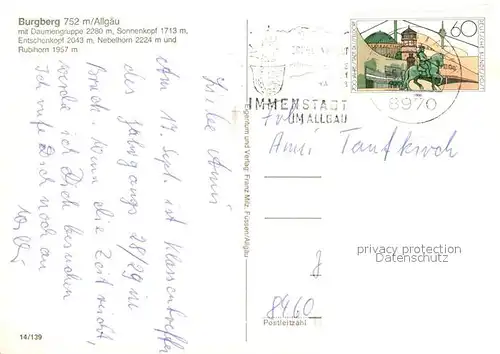 Burgberg 752 m/Allgäu
mit Daumengruppe 2280 m, Sonnenkopf 1713 m,
Entschenkopf 2043 m, Nebelhorn 2224 m und
Rubihorn 1957 m
Liebe Anni
Am 17. Sept. ist Klassentreffen
des Jahrgangs 28/29 in
Bruck. Wenn die Zeit reicht,
werde ich Dich besuchen
Ich rufe Dich noch an
Willi
14/139
Eigentum und Verlag Franz Milz, Füssen/Allgäu
60
DEUTSCHE BUNDESPOST
IMMENSTADT
IM ALLGÄU
8970
Anni
8460
Postleitzahl
privacy protection
Datenschutz